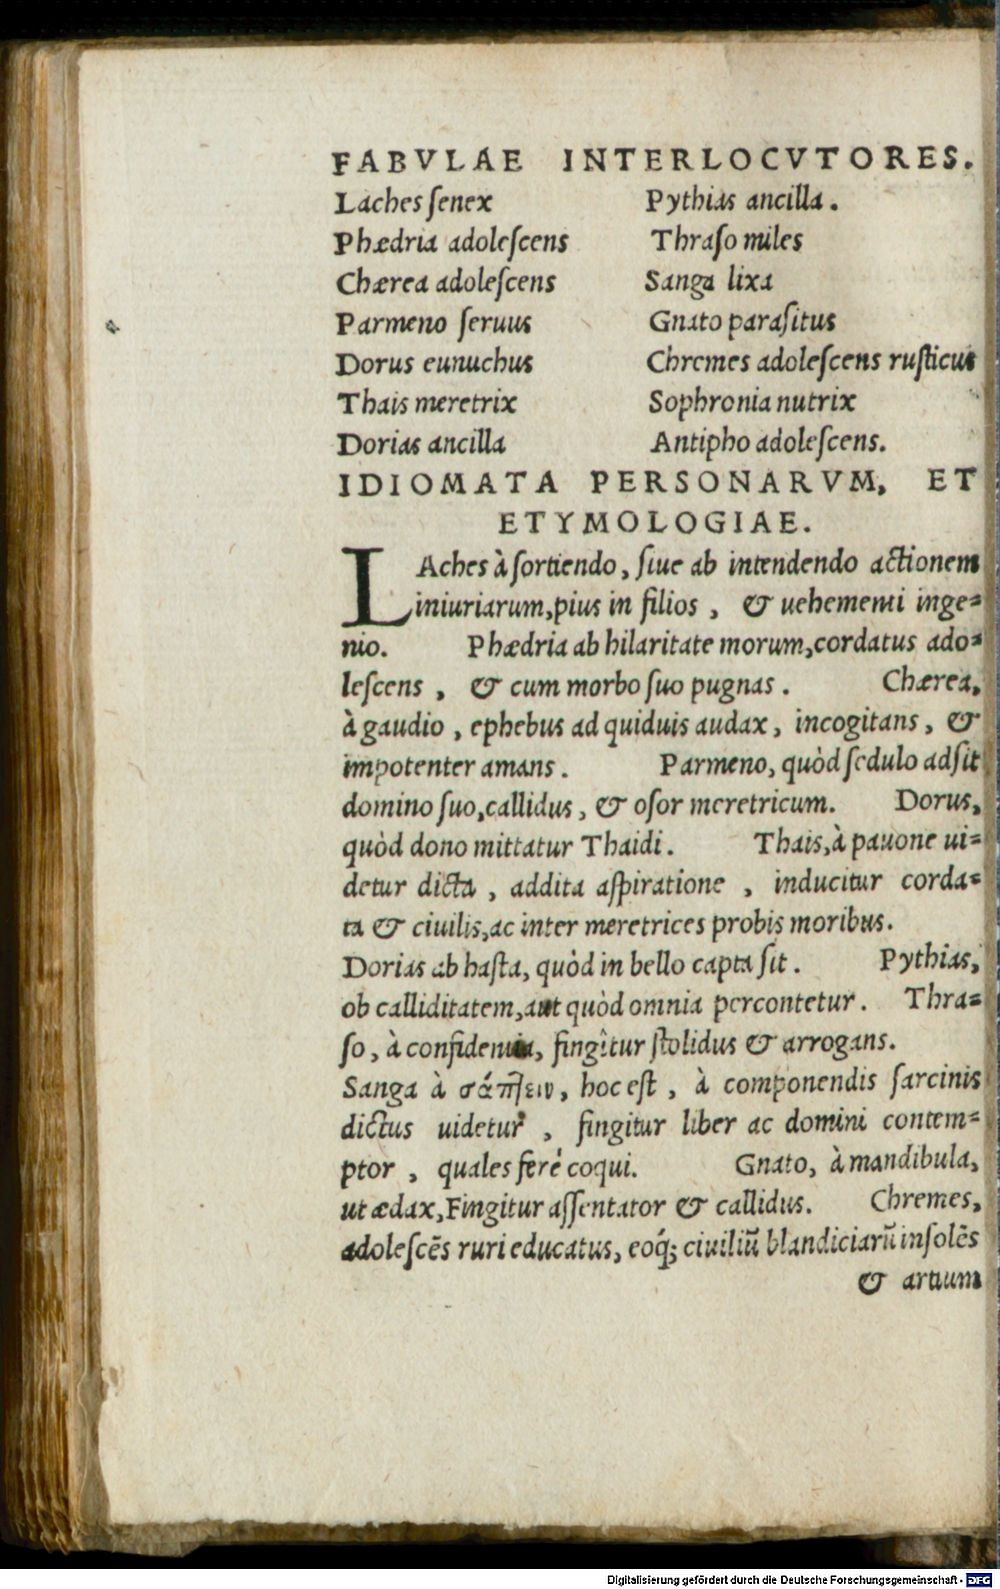 FABVLAE INTERLOCVTORES.
Laches ſenex
Phædria adoleſcens
Chærea adoleſcens
Parmeno ſeruus
Dorus eunuchus
Thais meretrix
Dorias ancilla
Pythias ancilla.
Thraſo miles
Sanga lixa
Gnato paraſitus
Chremes adoleſcens ruſticus
Sophronia nutrix
Antipho adoleſcens.
IDIOMATA PERSONARVM, ET
ETYMOLOGIAE.
LAches à ſortiendo, ſiue ab intendendo actionem
iniuriarum, pius in filios, & uehementi inge=
nio. Phædria ab hilaritate morum, cordatus ado=
leſcens, & cum morbo ſuo pugnas. Chærea,
à gaudio, ephebus ad quiduis audax, incogitans, &
impotenter amans. Parmeno, quòd ſedulo adſit
domino ſuo, callidus, & oſor meretricum. Dorus,
quòd dono mittatur Thaidi. Thais, à pauone ui=
detur dicta, addita aſpiratione, inducitur corda=
ta & ciuilis, ac inter meretrices probis moribus.
Dorias ab haſta, quòd in bello capta ſit. Pythias,
ob calliditatem, aut quòd omnia percontetur. Thra=
ſo, à confidentia, fingitur ſtolidus & arrogans.
Sanga à σάττειν, hoc eſt, à componendis ſarcinis
dictus uidetur, fingitur liber ac domini contem=
ptor, quales ferè coqui. Gnato, à mandibula,
ut ædax, Fingitur aſſentator & callidus. Chremes,
adoleſcēs ruri educatus, eoq́; ciuiliũ blandiciarũ inſolēs
& artium
Digitalisierung gefördert durch die Deutsche Forschungsgemeinschaft - DFG